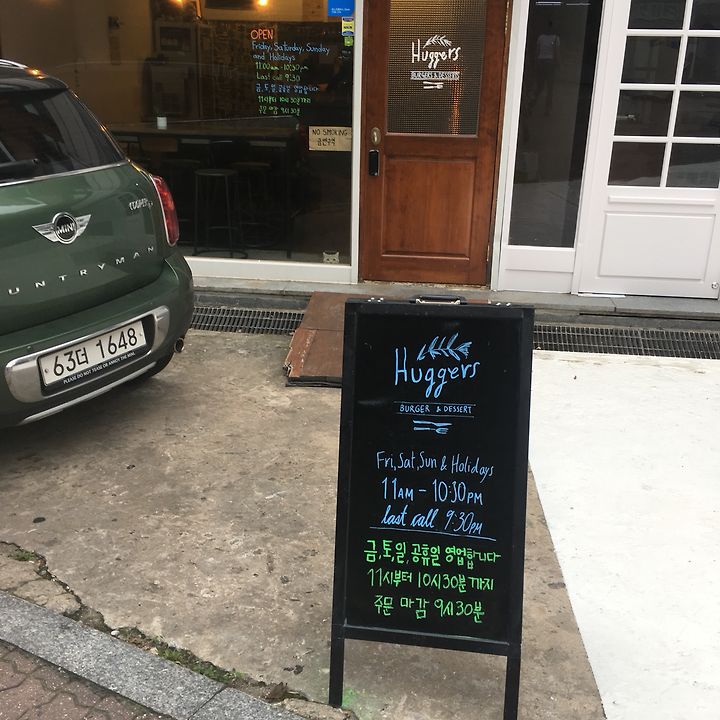 OPEN
Friday, Saturday, Sunday
and Holidays
11:00am - 10:30pm
Last call 9:30
금,토,일,공휴일 영업합니다
11시부터 10시30분까지
주문 마감 9시30분
NO SMOKING
금연구역
Huggers
BURGERS & DESSERTS
COOPER
MINI
UNTRYMAN
63더 1648
PLEASE DO NOT TEASE OR ANNOY THE MINI.
Huggers
BURGER & DESSERT
Fri, Sat, Sun & Holidays
11AM - 10:30PM
last call 9:30PM
금,토,일,공휴일 영업합니다
11시부터 10시30분 까지
주문 마감 9시30분